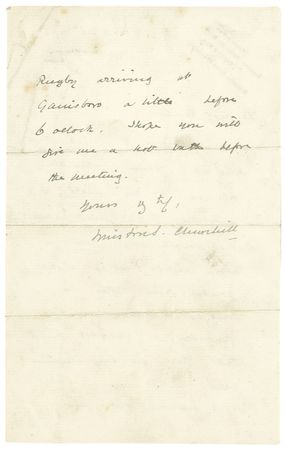 Rugby arriving at
Gainsboro a little before
6 oclock. I hope you will
give me a hot bath before
the meeting.
Yours vy tly,
Winston S. Churchill